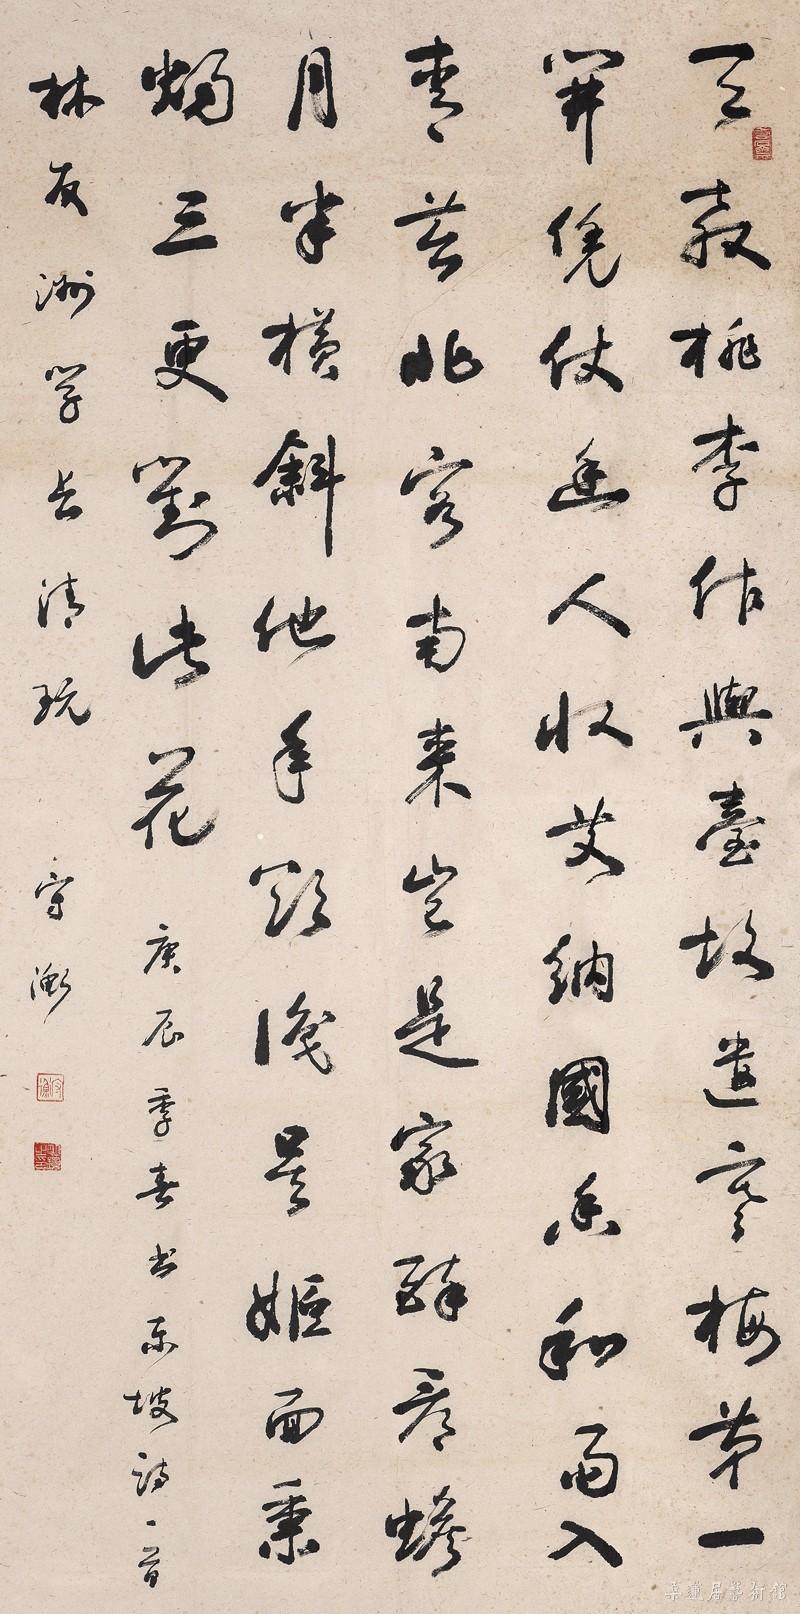 天教桃李作輿臺故遣寒梅第一
開凭仗幽人收艾納國香和雨入
青苔北客南來豈是家醉看蟾
月半橫斜他年欲識吳姬面秉
燭三更對此花 庚辰季春書東坡詩一首
林友洲學長清玩 守
蓮居藝術館